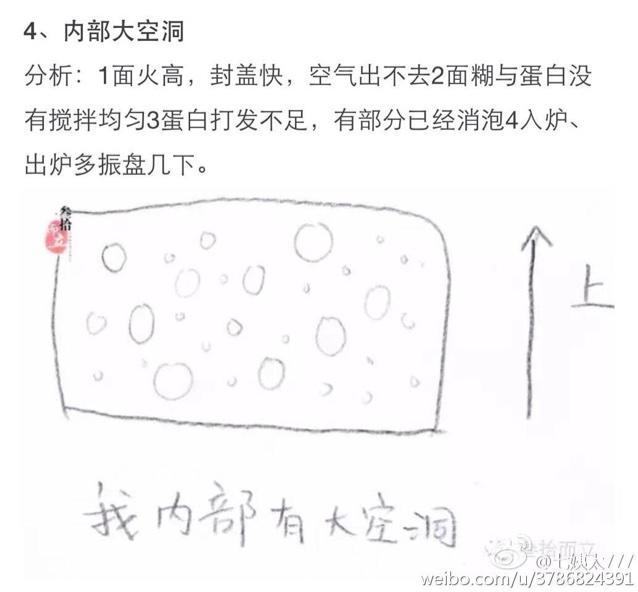 4、内部大空洞
分析：1面火高，封盖快，空气出不去2面糊与蛋白没
有搅拌均匀3蛋白打发不足，有部分已经消泡4入炉、
出炉多振盘几下。
叁拾
而立
上
我内部有大空洞
叁拾而立
weibo.com/u/3786824391